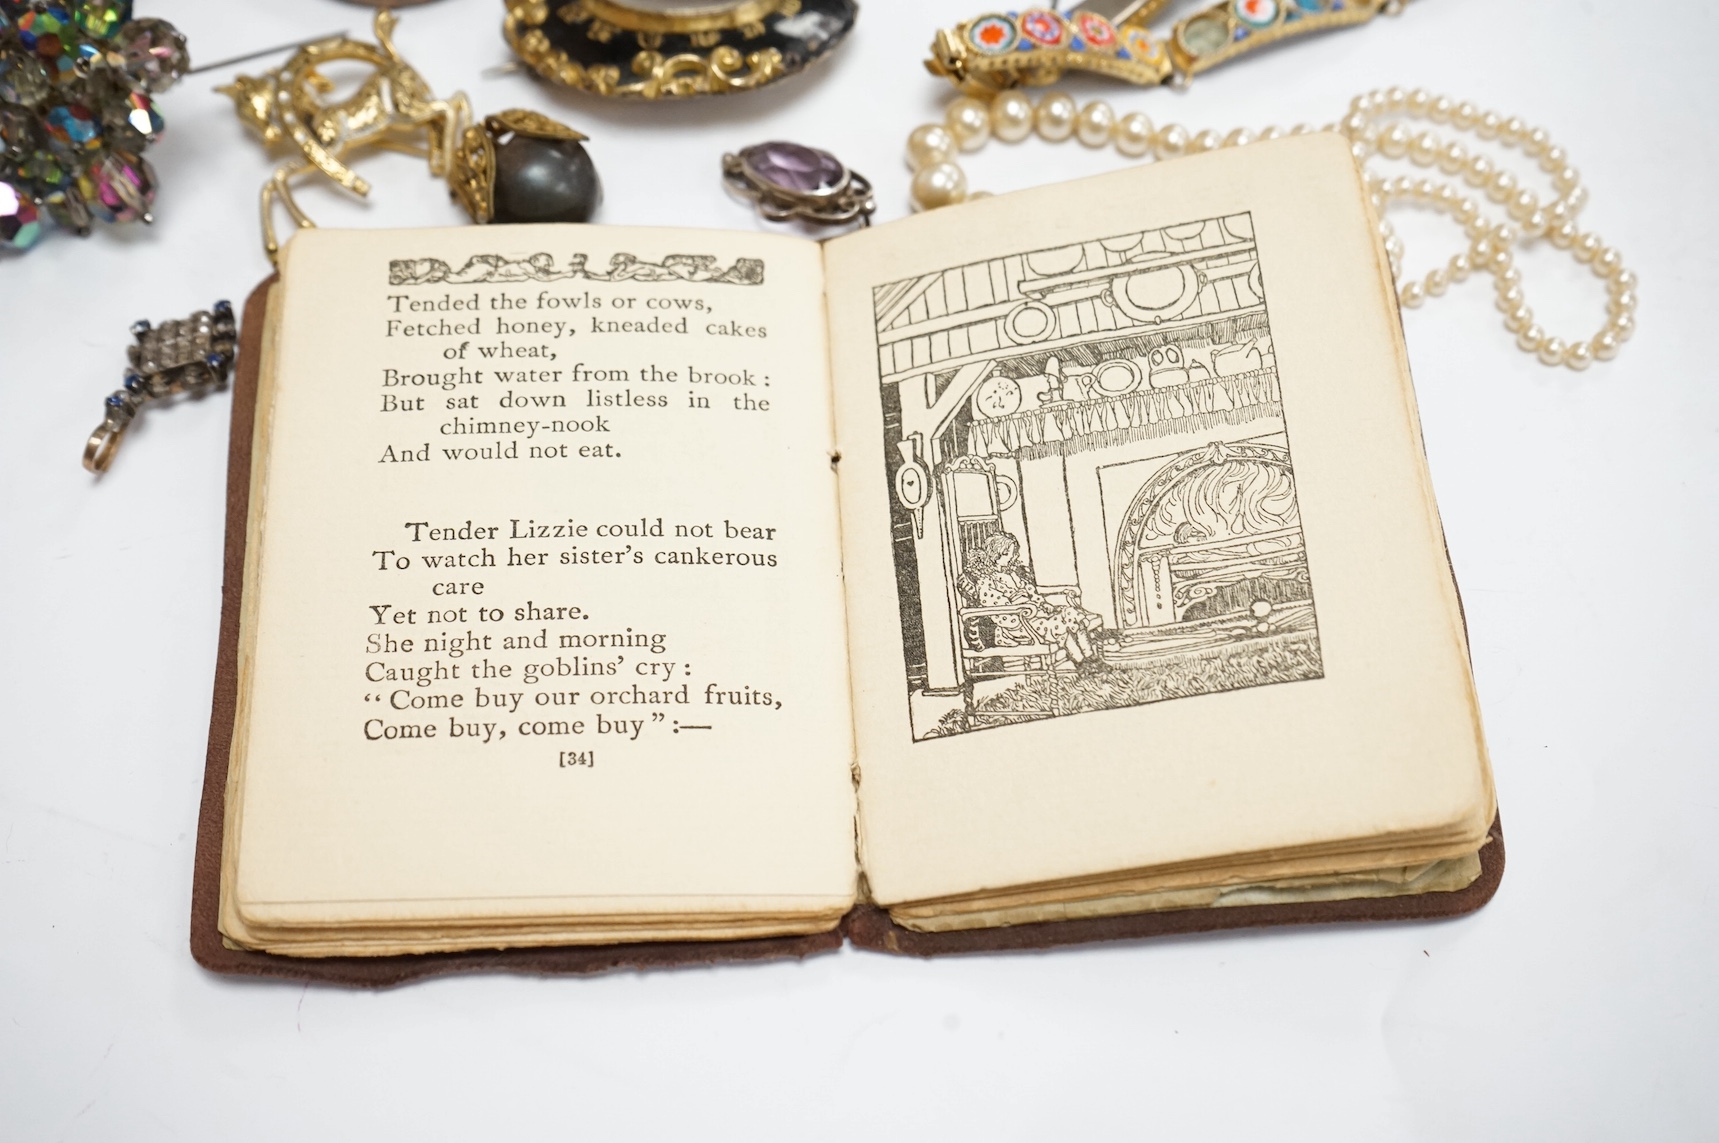 Tended the fowls or cows,
Fetched honey, kneaded cakes
of wheat,
Brought water from the brook :
But sat down listless in the
chimney-nook
And would not eat.
Tender Lizzie could not bear
To watch her sister’s cankerous
care
Yet not to share.
She night and morning
Caught the goblins’ cry :
“ Come buy our orchard fruits,
Come buy, come buy ” :—
[34]